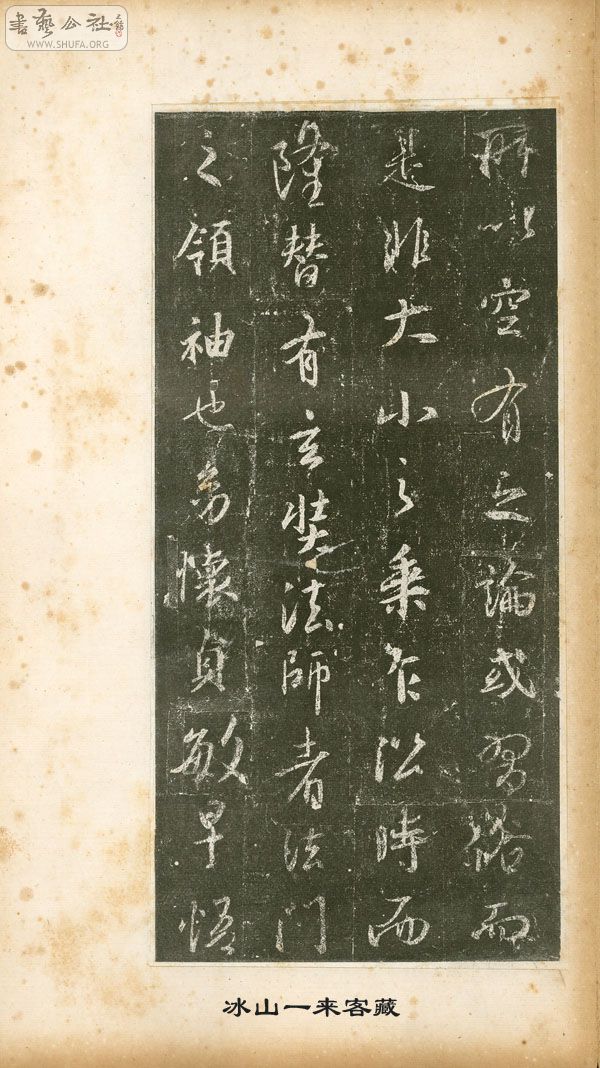 書藝公社
WWW.SHUFA.ORG
所以空有之論或習俗而
是非大小之乘乍沿時而
隆替有玄奘法師者法門
之領袖也幼懷貞敏早悟
冰山一来客藏